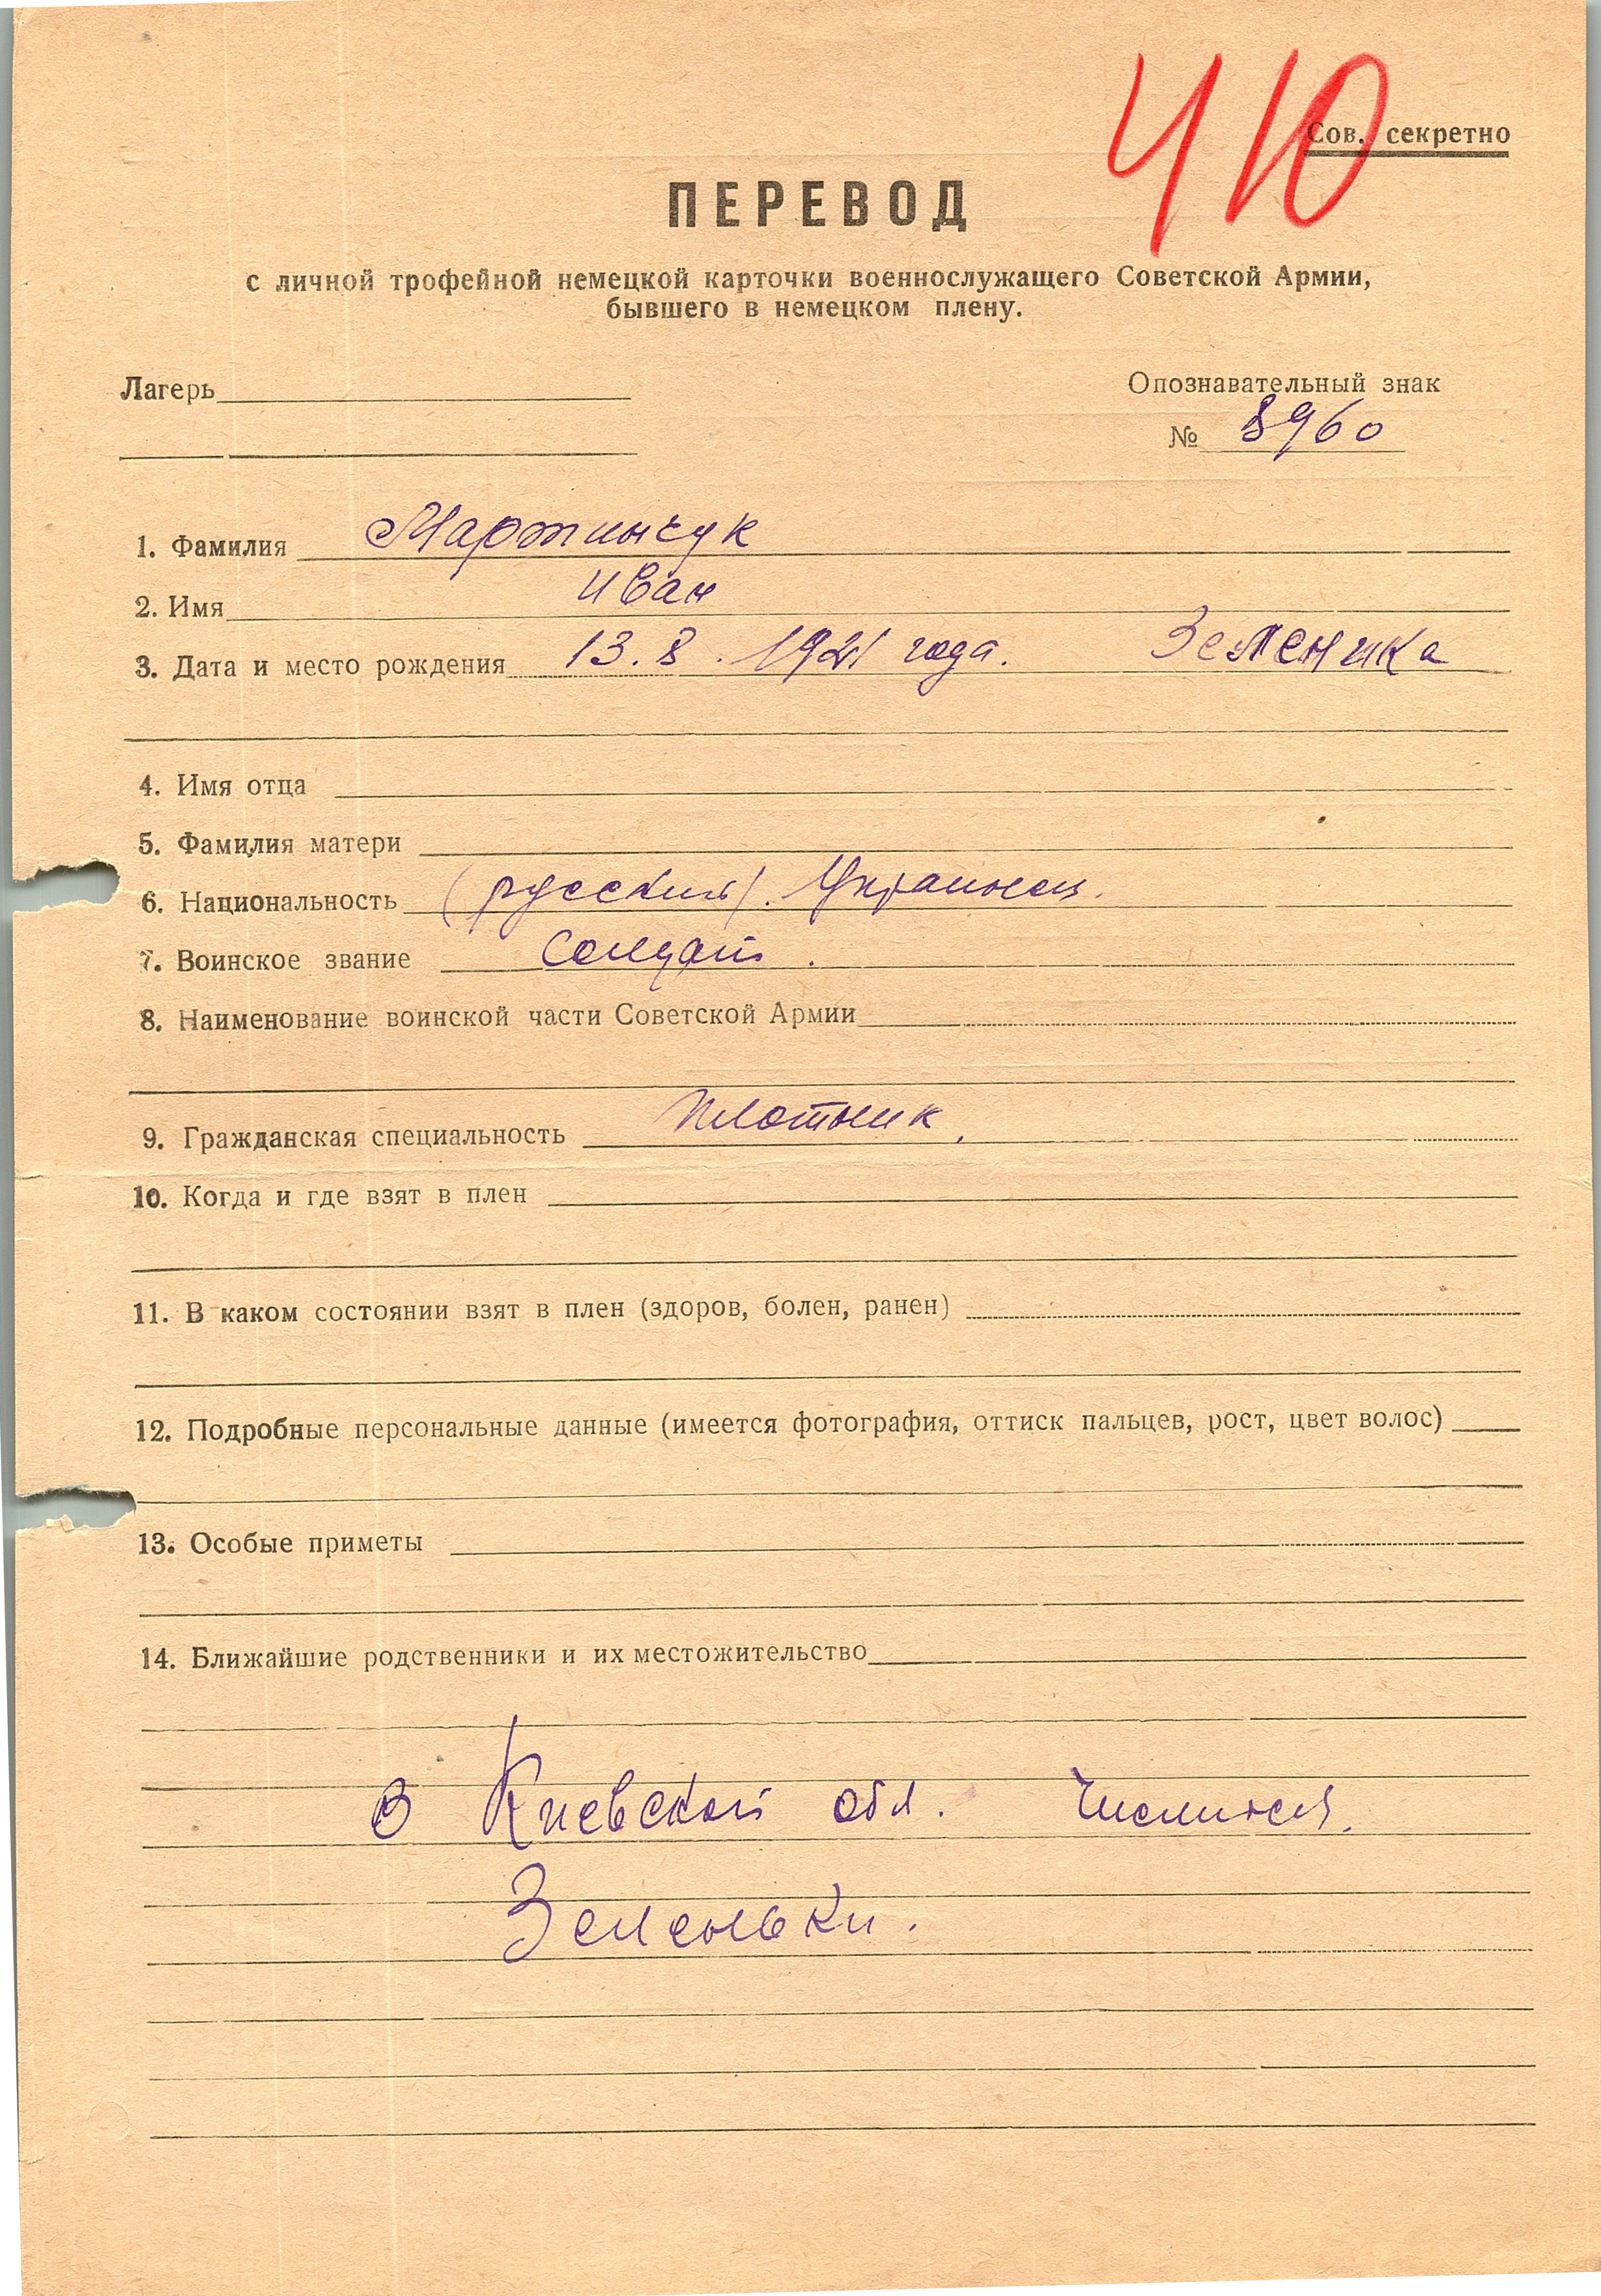 40
Сов. секретно
ПЕРЕВОД
с личной трофейной немецкой карточки военнослужащего Советской Армии,
бывшего в немецком плену.
Лагерь
Опознавательный знак
№ 8960
1. Фамилия Мартинчук
2. Имя Иван
3. Дата и место рождения 13.8.1921 года. Зеленика
4. Имя отца
5. Фамилия матери
6. Национальность (русский). Украинец.
7. Воинское звание Солдат.
8. Наименование воинской части Советской Армии
9. Гражданская специальность Плотник.
10. Когда и где взят в плен
11. В каком состоянии взят в плен (здоров, болен, ранен)
12. Подробные персональные данные (имеется фотография, оттиск пальцев, рост, цвет волос)
13. Особые приметы
14. Ближайшие родственники и их местожительство
В Киевской обл. Числится.
Зеленьки.